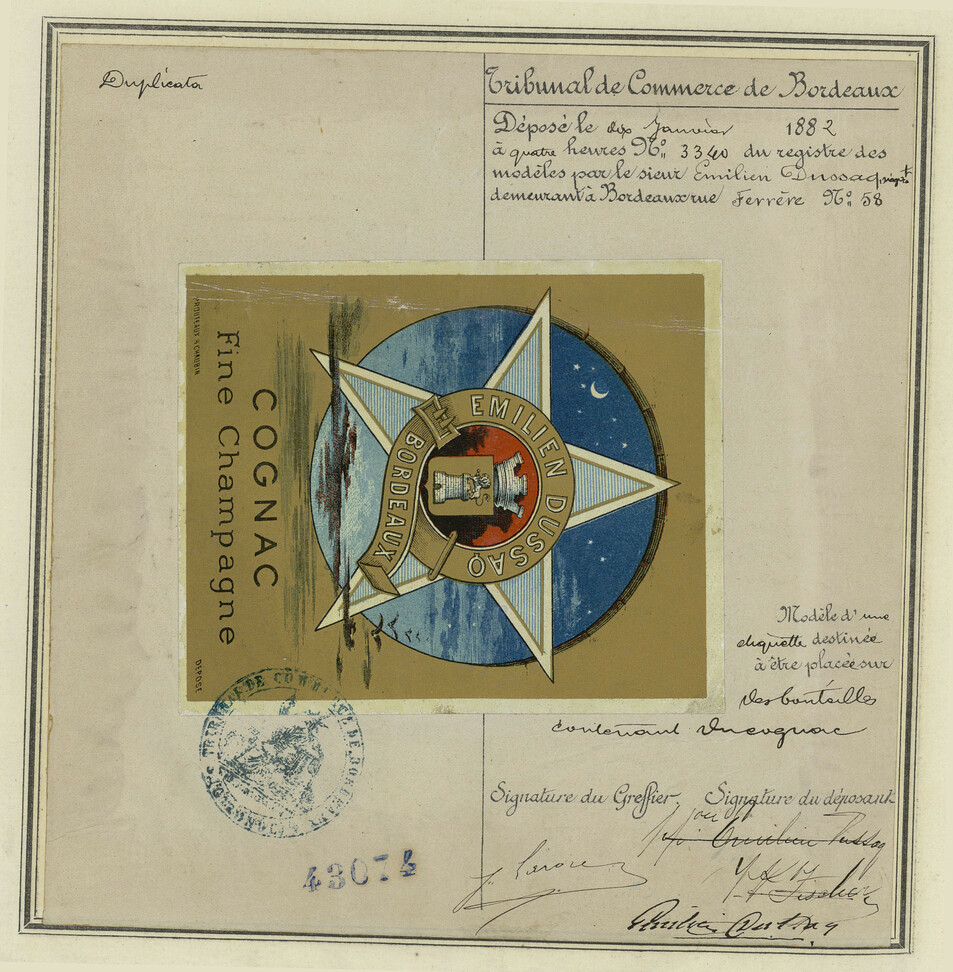 Duplicata
Tribunal de Commerce de Bordeaux
Déposé le dix Janvier 1882
à quatre heures No. 3340 du registre des
modèles par le sieur Emilien Dussaq,
demeurant à Bordeaux rue Ferrère No. 58
EMILIEN DUSSAQ
BORDEAUX
COGNAC
Fine Champagne
DEPOSÉ
Modèle d'une
étiquette destinée
à être placée sur
des bouteilles
contenant du cognac
TRIBUNAL DE COMMERCE DE BORDEAUX
Signature du Greffier. Signature du déposant
Emilien Dussaq
Emilien Dussaq
43074